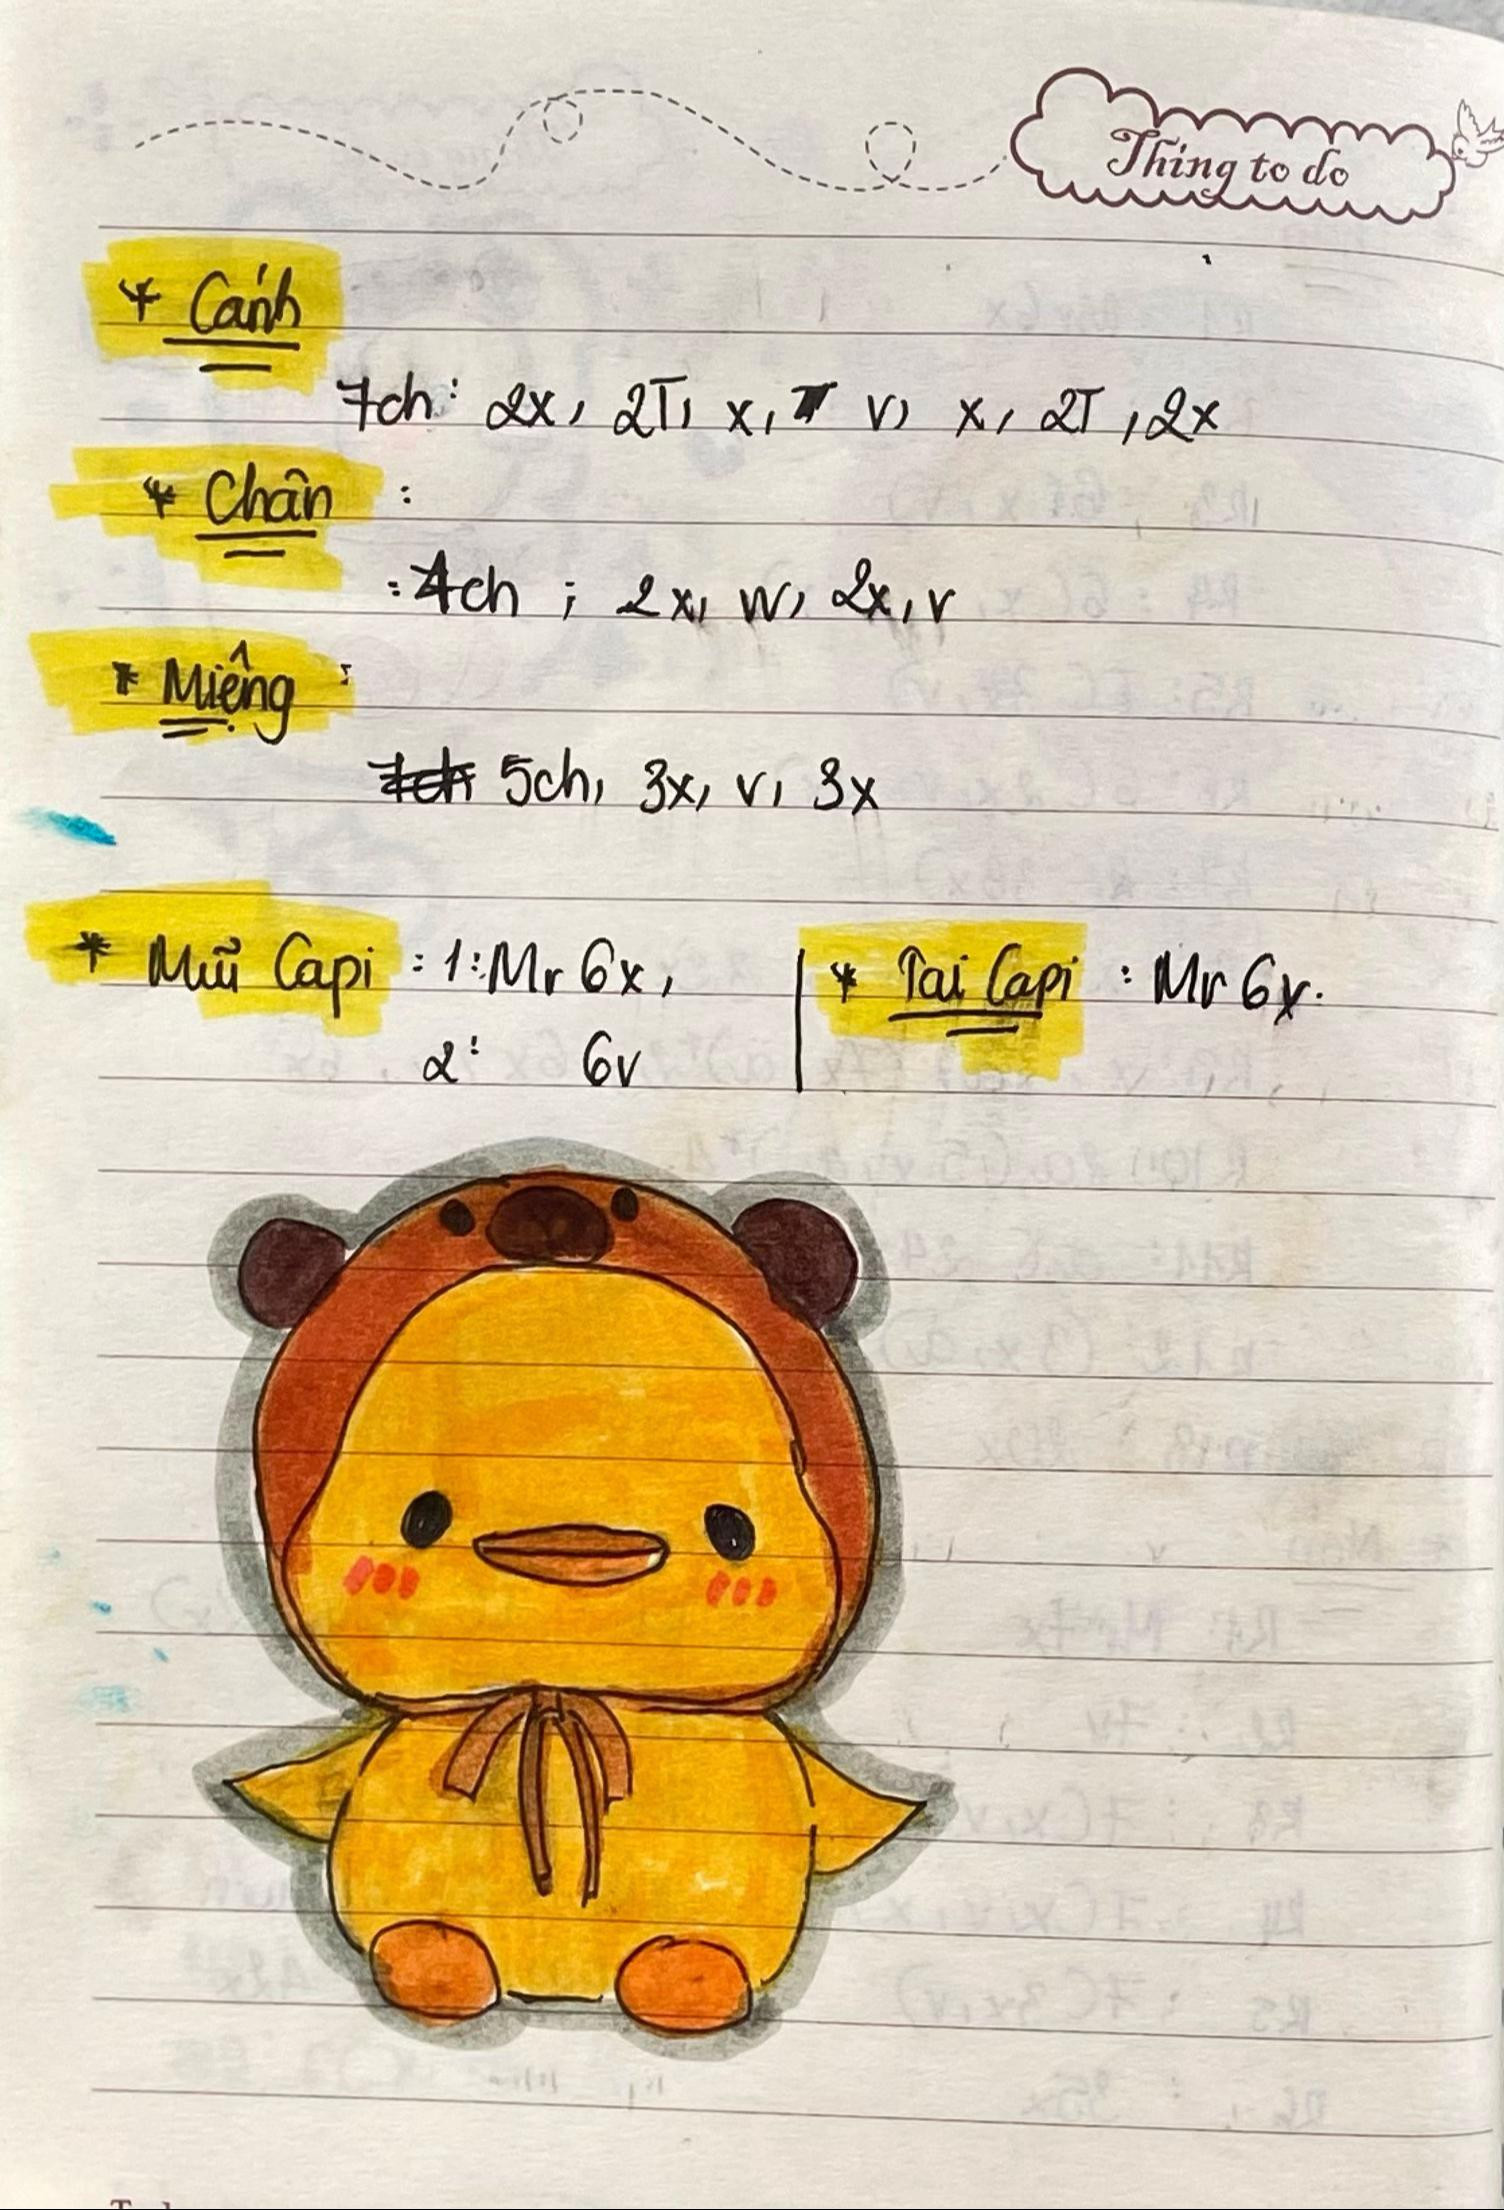 Thing to do
* Cánh
7ch: 2x, 2T, x, v, x, 2T, 2x
* Chân :
: 4ch ; 2x, w, 2x, v
* Miệng :
5ch, 3x, v, 3x
* Mũi Capi : 1: Mr 6x, * Tai Capi : Mr 6x.
2: 6v